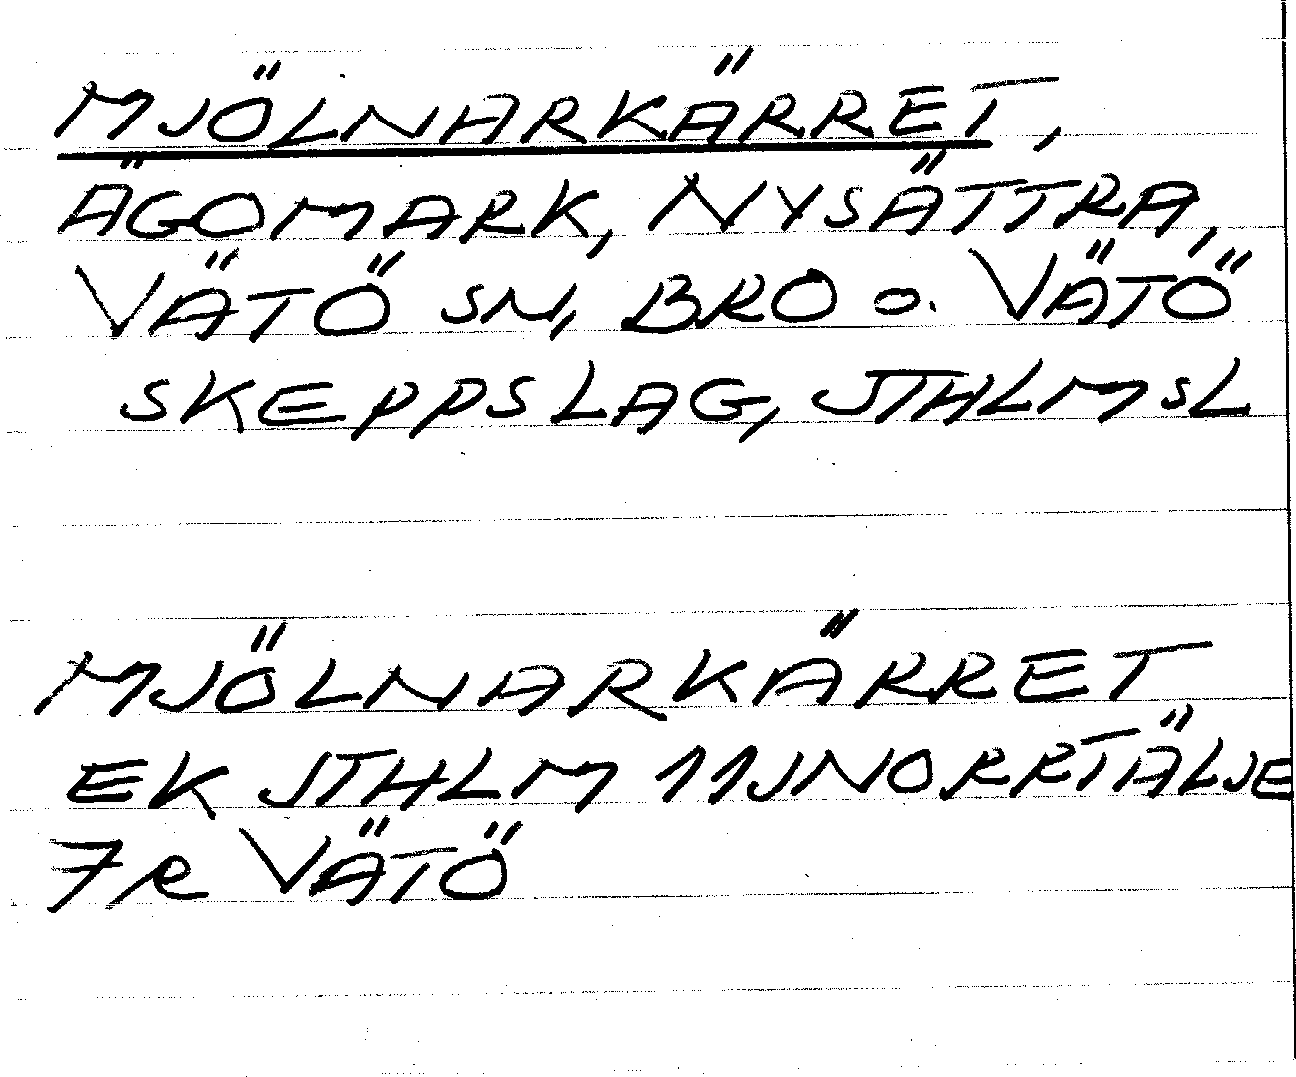 MJÖLNARKÄRRET,
ÄGOMARK, NYSÄTTRA,
VÄTÖ SN, BRO o. VÄTÖ
SKEPPSLAG, STHLMSL
MJÖLNARKÄRRET
EK STHLM 11J NORRTÄLJE
FR VÄTÖ